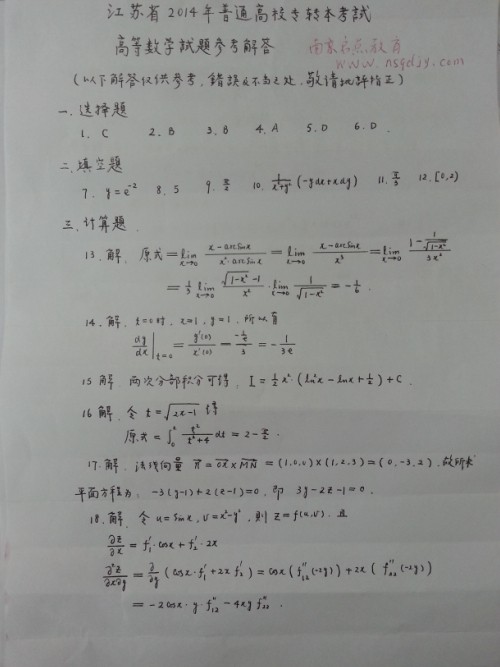 江苏省2014年普通高校专转本考试
高等数学試題参考解答
www.nsgdjy.com
(以下解答仅供参考，錯誤及不当之处，敬请批評指正)
一、选择题
1. C 2. B 3. B 4. A 5. D 6. D
二、填空题
7. y=e^{-2} 8. 5 9. π/2 10. 1/(x²+y²) (-ydx+xdy) 11. π/3 12. [0,2)
三、计算题
13. 解、原式 = lim_{x→0} (x-arcsinx)/(x²·arcsinx) = lim_{x→0} (x-arcsinx)/x³ = lim_{x→0} (1-1/√(1-x²))/(3x²)
= 1/3 lim_{x→0} (√(1-x²)-1)/x² · lim_{x→0} 1/√(1-x²) = -1/6.
14. 解、t=0时, x=1, y=1, 所以有
dy/dx|_{t=0} = y'(0)/x'(0) = (-1/e)/3 = -1/(3e)
15 解、两次分部积分可得, I=½x²·(ln²x-lnx+½)+C.
16 解、令 t=√(2x-1) 得
dt = 2-π/2.
17. 解、法线向量 n=OX×MN=(1,0,0)×(1,2,3)=(0,-3,2), 故所求
平面方程为: -3(y-1)+2(z-1)=0, 即 3y-2z-1=0.
18. 解、令 u=sinx, v=x²-y², 则 z=f(u,v). 且
∂z/∂x = f₁'·cosx+f₂'·2x
∂²z/∂x∂y = ∂/∂y (cosx·f₁'+2x f₂') = cosx(f₁₂''(-2y))+2x(f₂₂''(-2y))
= -2cosx·y·f₁₂''-4xy f₂₂''.